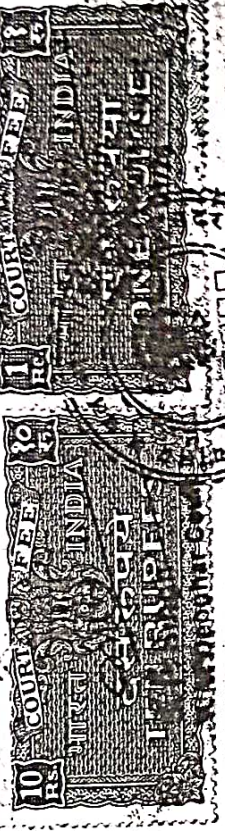 1 RE.
COURT FEE
१ रु.
भारत INDIA
एक रुपया
ONE RUPEE
10 RS
COURT FEE
१० रु.
भारत INDIA
दस रुपये
TEN RUPEES